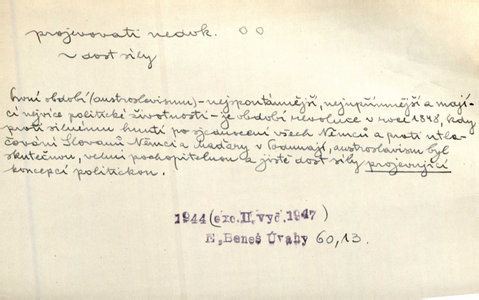 projevovati nedok.
~ dost síly
První období (austroslavismu) – nejspontánnější, nejupřímnější a mají-
cí nejvíce politické životnosti – je období revoluce v roce 1848, kdy
proti silnému hnutí po sjednocení všech Němců a proti utla-
čování Slovanů Němci a Maďary v Podunají, austroslavism byl
skutečnou, velmi pochopitelnou a jistě dost síly projevující
koncepcí politickou.
1944 (exc. II. vyd. 1947)
E. Beneš Úvahy 60, 13.